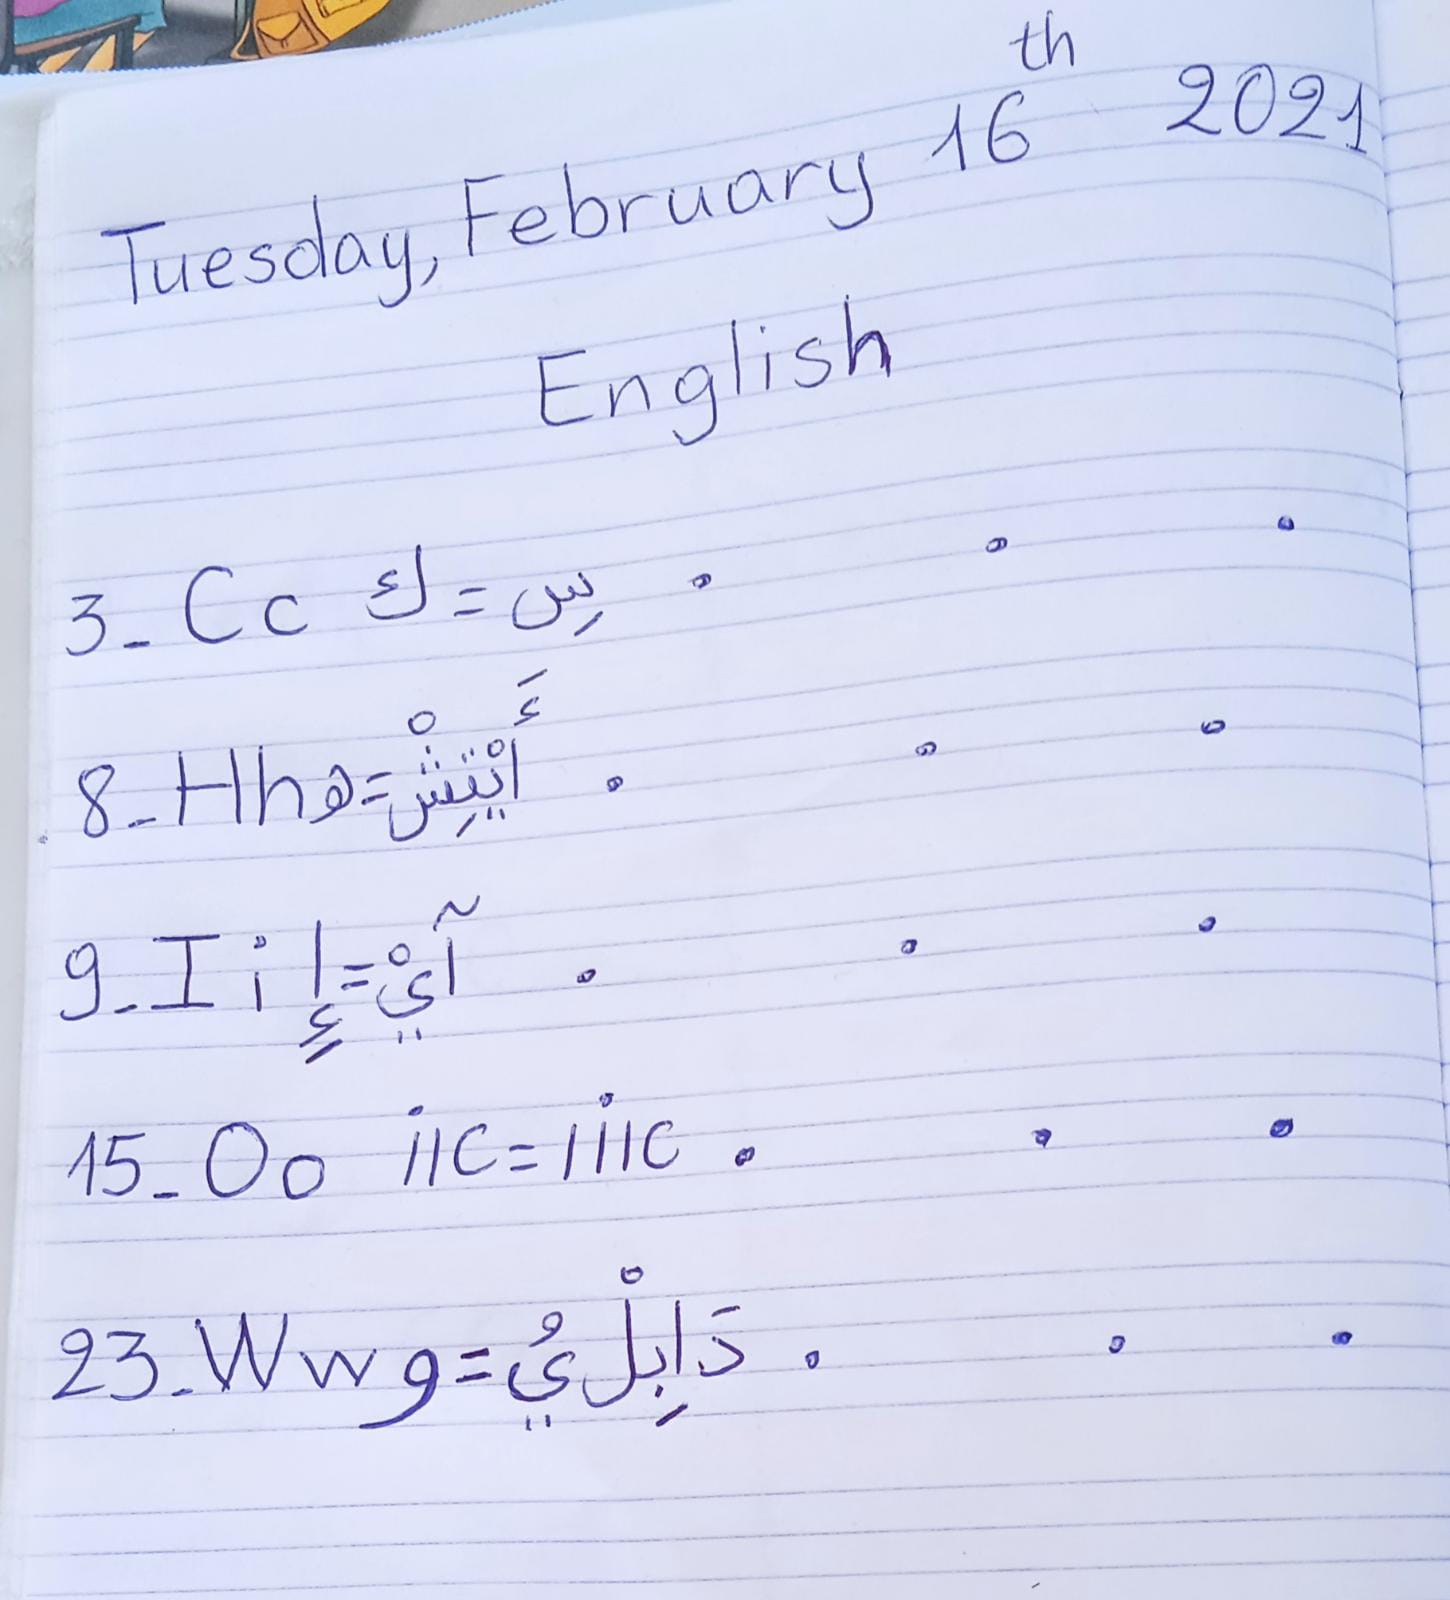 Tuesday, February 16th 2021
English
3_ Cc ك = سِ . . .
8_ Hh ه = أَيْتِشْ . . .
9_ I i إِ = آيْ . . .
15_ Oo . . .
23_ Ww و = دَابِلْ يُ . . .